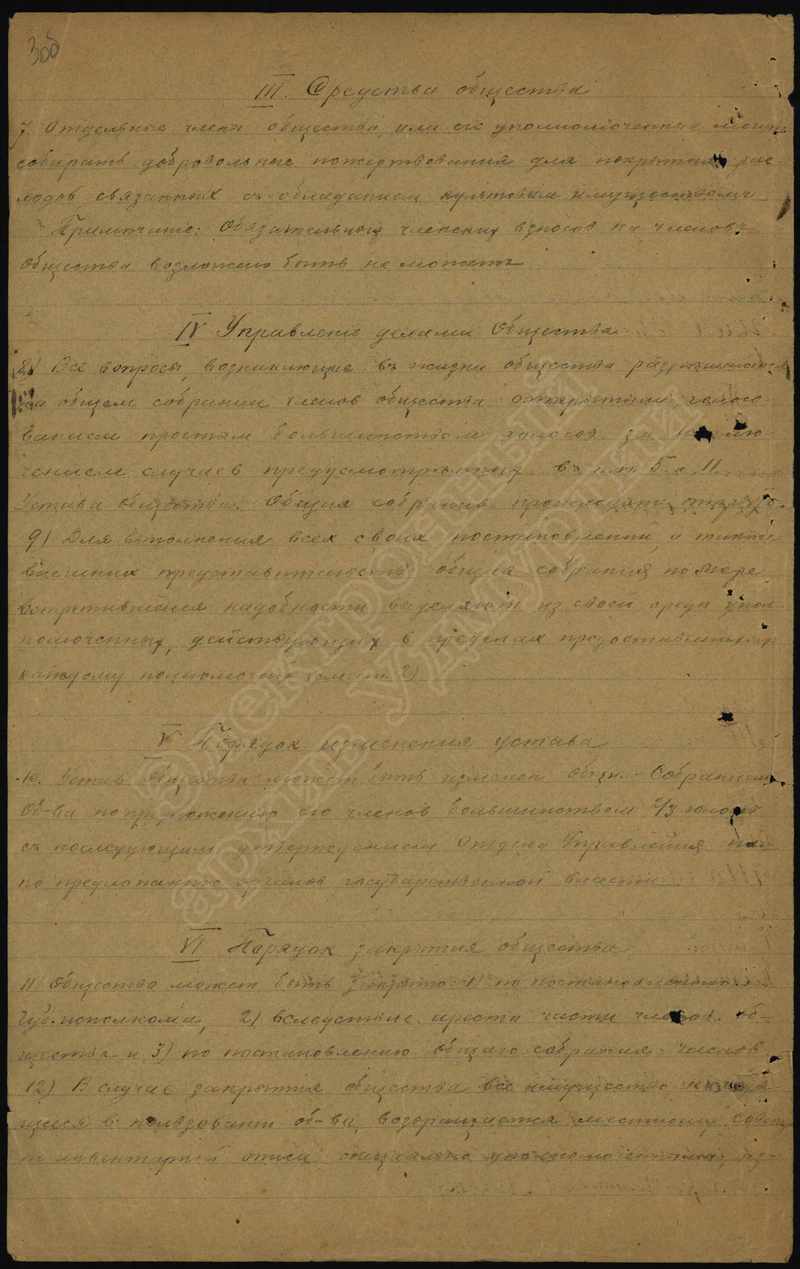 3об
III. Средства общества
7. Отдельные члены общества, или его уполномоченные могут
собирать добровольные пожертвования для покрытия рас-
ходов связанных съ обладанием культовым имуществомъ
Примечание: Обязательных членских взносов на членовъ
общества возложено быть не можетъ
IV Управление делами Общества
8) Все вопросы, возникающие въ жизни общества разрешаются
на общем собрании членов общества открытым голосо-
ванием простым большинством голосов за исклю-
чением случаев предусмотренных въ п.п. 5 и 11
Устава общества. Общия собрания происходят
9) Для выполнения всех своих постановлений, и также
внешних представительств общия собрания по мере
встретившейся надобности выделяют из своей среды упол-
номоченных, действующих в пределах предоставленных
каждому полномочий
V Порядок изменения устава
10. Устав общества может быть изменен общ. Собранием
Об-ва по предложению его членов большинством 2/3 голосов
съ последующим утверждением Отдела Управления или
по предложению органов государственной власти
VI Порядок закрытия общества
11 Общество может быть закрыто 1) по постановлению
Губисполкома, 2) вследствие части членов об-
щества и 3) по постановлению общаго собрания членов
12) В случае закрытия общества все имущество находя-
щееся в пользовании об-ва, возвращается местному Совету
по инвентарной описи специально
Электронный
архив Удмуртии